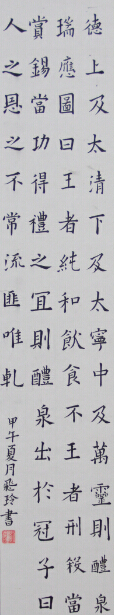 德上及太清下及太寧中及萬靈則醴泉
瑞應圖曰王者純和飲食不王者刑殺當
賞錫當功得禮之冝則醴泉出於冠子曰
人之恩之不常流匪唯乹
甲午夏月玲書